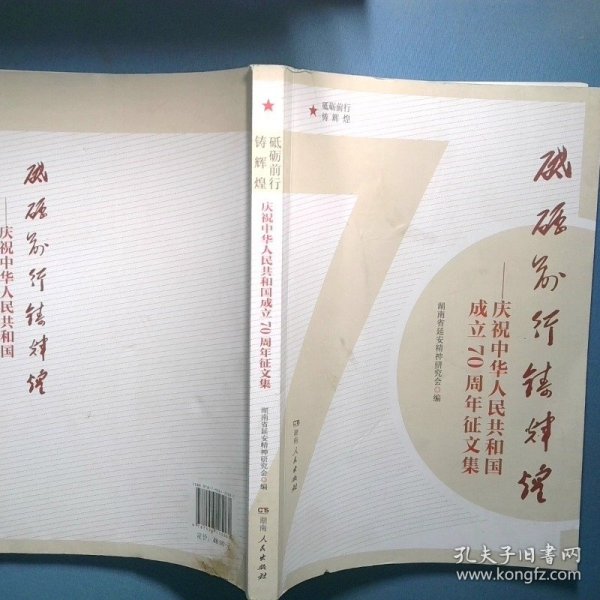 砥砺前行
铸辉煌
砥砺前行铸辉煌
——庆祝中华人民共和国
成立70周年征文集
湖南省延安精神研究会◎编
湖南人民出版社
砥砺前行
铸辉煌
庆祝中华人民共和国成立70周年征文集
湖南省延安精神研究会◎编
湖南人民出版社
砥砺前行铸辉煌
——庆祝中华人民共和国
孔夫子旧书网
www.kongfz.com